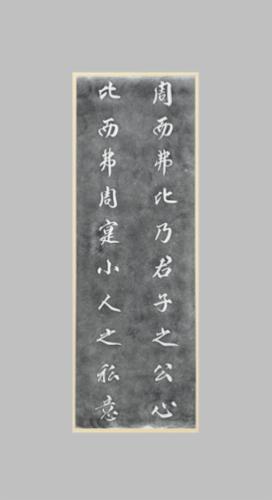 周而弗比乃君子之公心
比而弗周寔小人之私意